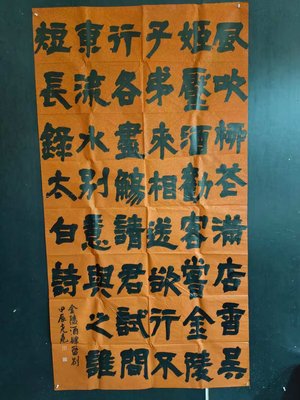 風吹柳花滿店香吳
姬壓酒勸客嘗金陵
子弟來相送欲行不
行各盡觴請君試問
東流水別意與之誰
短長錄太白詩
金陵酒肆留別
甲辰